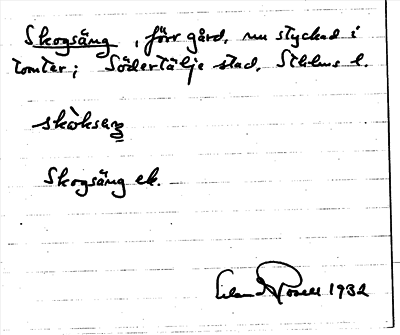 Skogsäng, förr gård, nu styckad i
tomter; Södertälje stad, Sthlms l.
skòksäŋ
Skogsäng ek.
Erland Rosell 1932